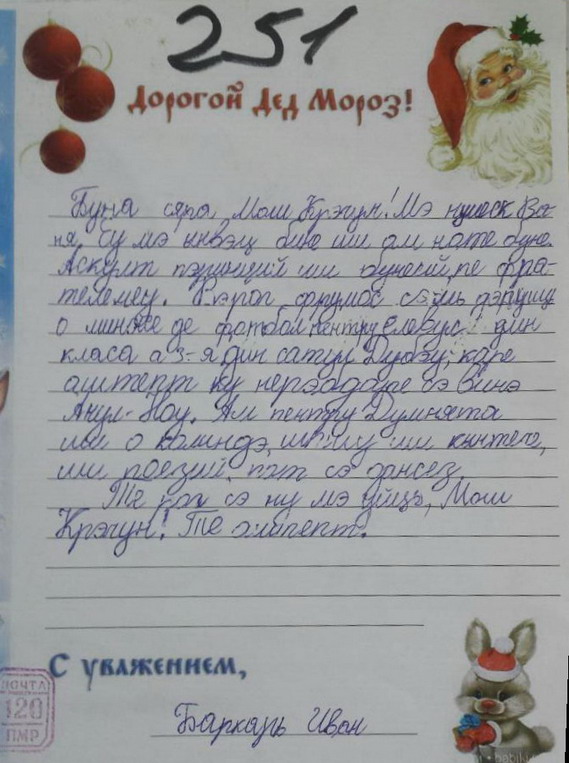 251
Дорогой Дед Мороз!
Буна сяра Мош Крэчун! Мэ нумеск Ва-
ня. Еу мэ ынвэц бине ши ам ноте буне.
Аскулт пэринций ши бунеий, пе фра-
телемеу. Те рог фрумос сэ-мь дэруешь
о минӂе де фотбол пентру елевул дин
класа а 3-а дин сатул Дубэу, каре
аштяптэ ку нерэбдаре сэ винэ
Анул-Ноу. Ам пентру Думнята
ши о колиндэ, ши ши кынтече,
ши поезий, пот сэ дансез.
Те рог сэ ну мэ уйць, Мош
Крэчун! Те аштепт.
С уважением,
Баркарь Иван
ПОЧТА
120
ПМР